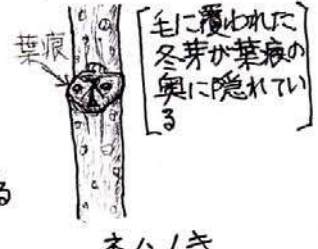 葉痕
毛に覆われた
冬芽が葉痕の
奥に隠れてい
る
る
ネムノキ